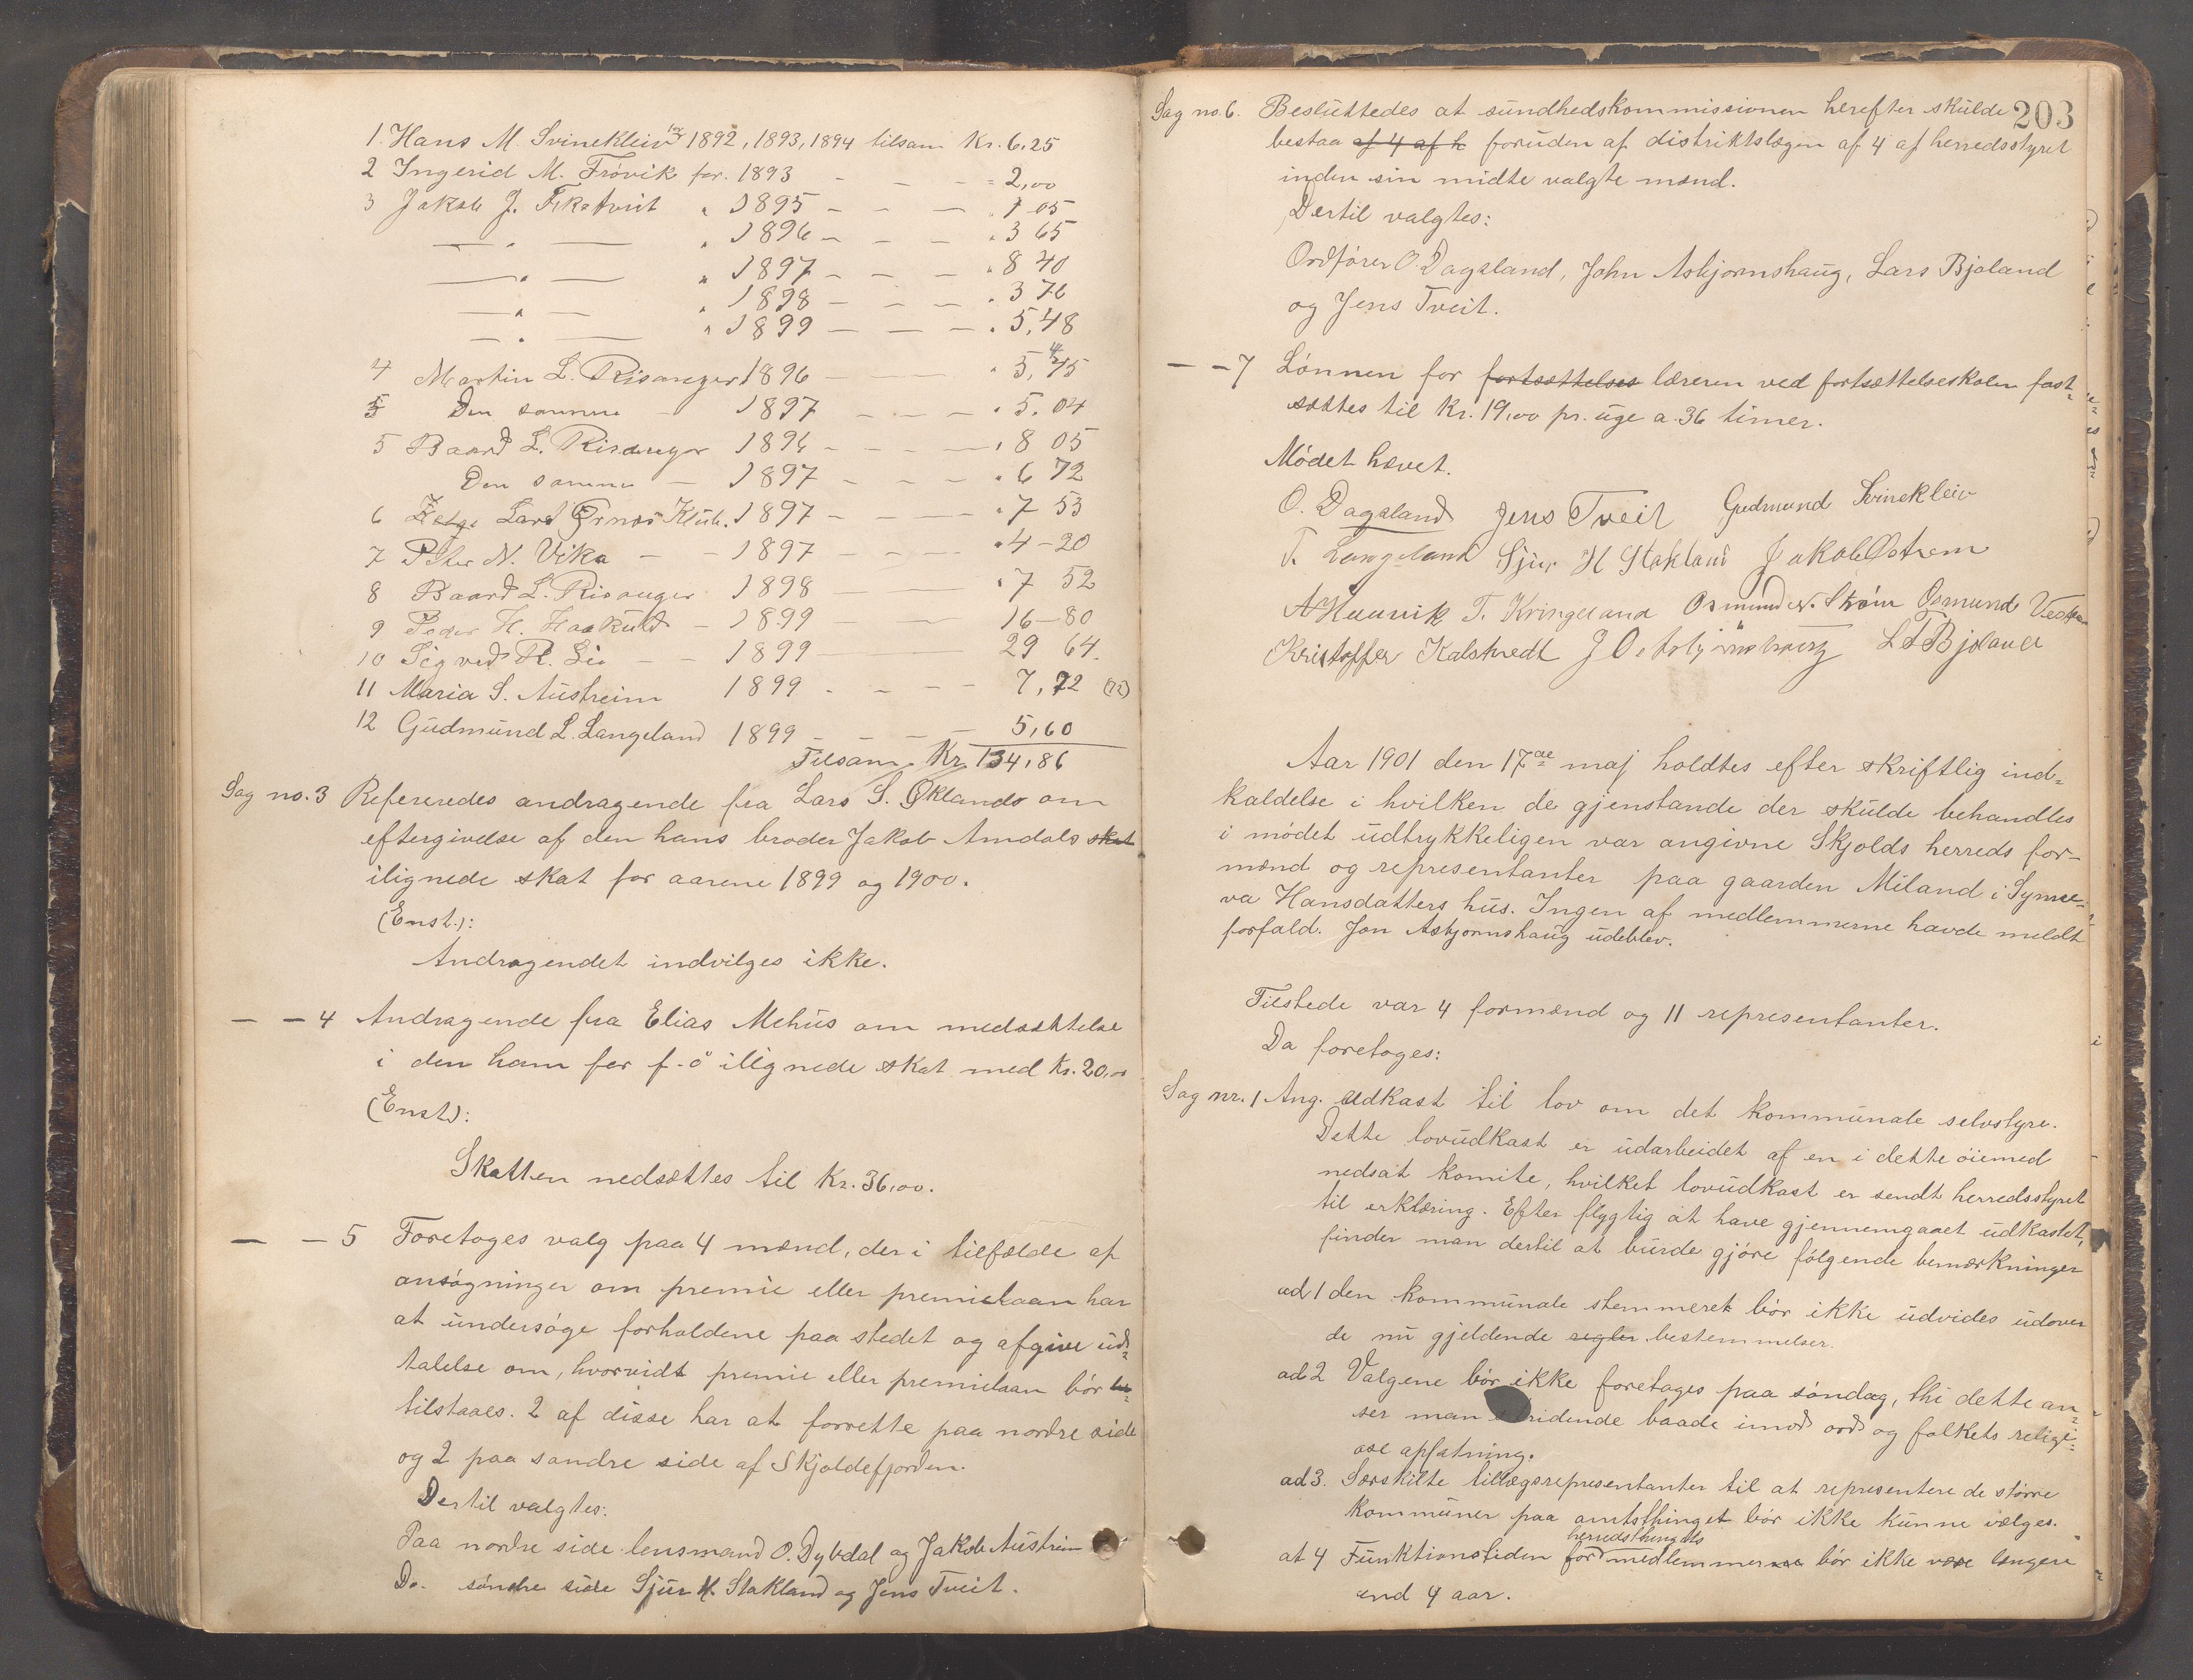 1. Hans M. Svinekleiv 1892, 1893, 1894 tilsam Kr. 6.25
2 Ingerid M. Frövik for. 1893 - - - 2,00
3 Jakob J. " 1895 - - - " 7 05
— " — " 1896 - - - " 3 65
— " — " 1897 - - - " 8 40
— " — " 1898 - - - " 3 76
— " — " 1899 - - - " 5,48
4 Martin L. Risanger 1896 — — " 5,45
5 Den samme - 1897 - - - " 5.04
5 Baard L. Risanger 1896 - - — " 8 05
Den samme - 1897 - - - " 6 72
6 Lars Ørnes Klub. 1897 - - - " 7 53
7 Peter N. Vika - - 1897 - - - " 4-20
8 Baard L. Risanger 1898 — — " 7 52
9 Peder H. Haakuld - 1899 — — 16-80
10 Sigved R. Lie - - 1899 — — 29 64.
11 Maria S. Austreim 1899 - - - - 7,72 (72)
12 Gudmund L. Langeland 1899 - - - - 5,60
Tilsam Kr 134,86
Sag no. 3 Refereredes andragende fra Lars S. Øklands om
eftergivelse af den hans broder Jakob Amdals skat
ilignede skat for aarene 1899 og 1900.
(Enst.):
Andragendet indvilges ikke.
— — 4 Andragende fra Elias Mehus om nedsættelse
i den ham for f. å ilignede skat med Kr. 20,00
(Enst):
Skatten nedsættes til Kr. 36,00.
— — 5 Foretoges valg paa 4 mænd, der i tilfælde af
ansøgninger om premie eller premielaan har
at undersøge forholdene paa stedet og afgive ud-
talelse om, hvorvidt premie eller premielaan bör
tilstaaes. 2 af disse har at forrette paa nordre side
og 2 paa søndre side af Skjoldefjorden.
Dertil valgtes:
Paa nordre side lensmand O. Dybdal og Jakob Austreim
Do. söndre side Sjur H. Stakland og Jens Tveit.
203
Sag no. 6. Besluttedes at sundhedskommissionen herefter skulde
bestaa af 4 af h foruden af distriktslægen af 4 af herredsstyret
inden sin midte valgte mænd.
Dertil valgtes:
Ordförer O. Dagsland, John Asbjornshaug, Lars Bjoland
og Jens Tveit.
— — 7 Lönnen for fortsættelses læreren ved fortsættelseskolen fast-
sættes til Kr. 19,00 pr. uge a. 36 timer.
Mödet hævet.
O. Dagsland Jens Tveit Gudmund Svinekleiv
T. Langeland Sjur H Stakland Jakob Østrem
A Hauvik T. Kringeland Osmund N. Ström Osmund
Kristoffer Kalstvedt J O Asbjörnshaug L T Bjoland
Aar 1901 den 17de maj holdtes efter skriftlig ind-
kaldelse i hvilken de gjenstande der skulde behandles
i mödet udtrykkeligen var angivne Skjolds herreds for-
mænd og representanter paa gaarden Miland i Synne-
va Hansdatters hus. Ingen af medlemmerne havde meldt
forfald. Jon Asbjornshaug udeblev.
Tilstede var 4 formænd og 11 representanter.
Da foretoges:
Sag nr. 1 Ang. udkast til lov om det kommunale selvstyre.
Dette lovudkast er udarbeidet af en i dette öiemed
nedsat komite, hvilket lovudkast er sendt herredsstyret
til erklæring. Efter flygtig at have gjennemgaaet udkastet,
finder man dertil at burde gjöre fölgende bemærkninger
ad 1 den kommunale stemmeret bör ikke udvides udover
de nu gjeldende regler bestemmelser.
ad 2 Valgene bör ikke foretages paa söndag, thi dette an-
ser man stridende baade imod ord og folkets religi-
øse opfatning.
ad 3. Særskilte tillægsrepresentanter til at representere de större
kommuner paa amtsthinget bör ikke kunne vælges.
herredsthingets
at 4 Funktionstiden for medlemmerne bör ikke være længere
end 4 aar.